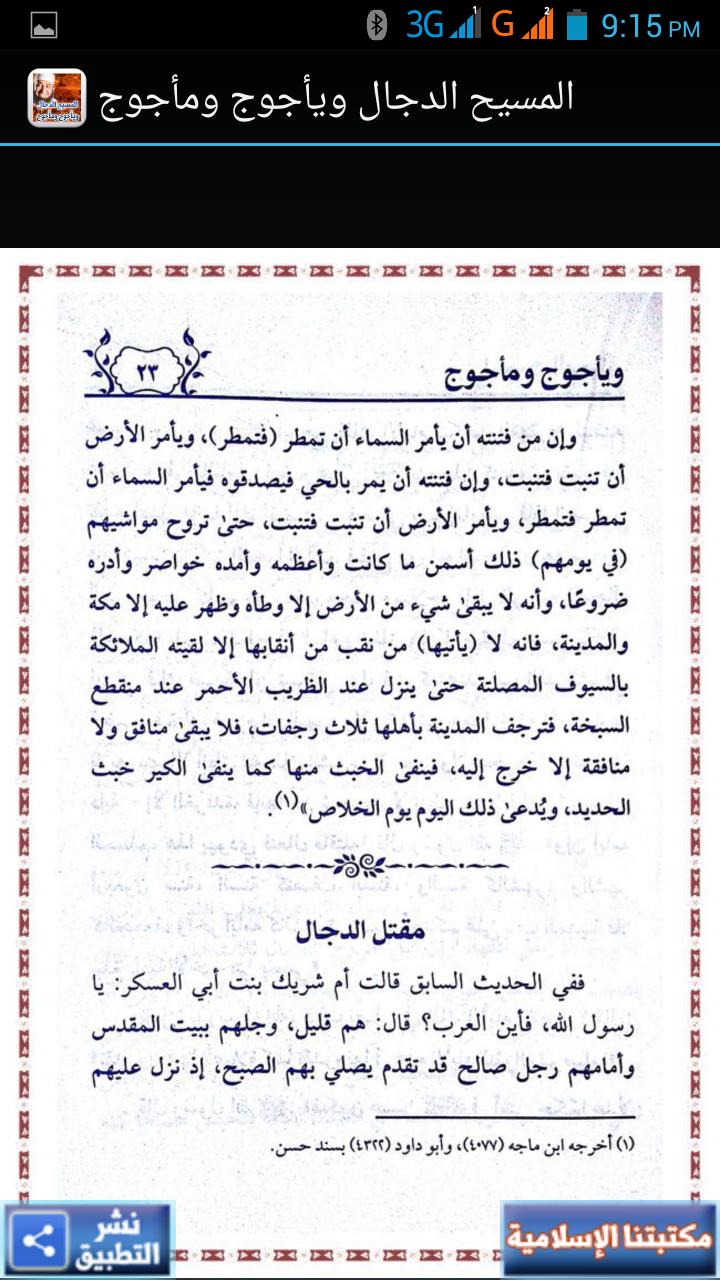 3G 1 G 2 9:15 PM
المسيح الدجال ويأجوج ومأجوج
ويأجوج ومأجوج
٢٣
وإن من فتنته أن يأمر السماء أن تمطر (فتمطر)، ويأمر الأرض
أن تنبت فتنبت، وإن فتنته أن يمر بالحي فيصدقوه فيأمر السماء أن
تمطر فتمطر، ويأمر الأرض أن تنبت فتنبت، حتىٰ تروح مواشيهم
(في يومهم) ذلك أسمن ما كانت وأعظمه وأمده خواصر وأدره
ضروعًا، وأنه لا يبقىٰ شيء من الأرض إلا وطأه وظهر عليه إلا مكة
والمدينة، فانه لا (يأتيها) من نقب من أنقابها إلا لقيته الملائكة
بالسيوف المصلتة حتىٰ ينزل عند الظريب الأحمر عند منقطع
السبخة، فترجف المدينة بأهلها ثلاث رجفات، فلا يبقىٰ منافق ولا
منافقة إلا خرج إليه، فينفىٰ الخبث منها كما ينفىٰ الكير خبث
الحديد، ويُدعىٰ ذلك اليوم يوم الخلاص»(١).
مقتل الدجال
ففي الحديث السابق قالت أم شريك بنت أبي العسكر: يا
رسول الله، فأين العرب؟ قال: هم قليل، وجلهم ببيت المقدس
وأمامهم رجل صالح قد تقدم يصلي بهم الصبح، إذ نزل عليهم
(١) أخرجه ابن ماجه (٤٠٧٧)، وأبو داود (٤٣٢٢) بسند حسن.
مكتبتنا الإسلامية
نشر
التطبيق